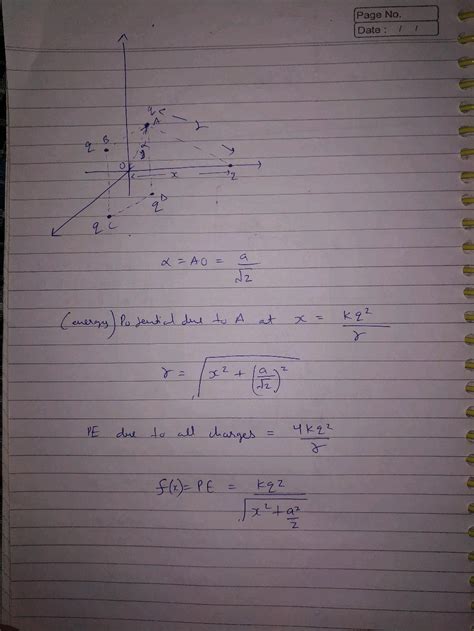 Page No.
Date : / /
q
A
r
q B
α
O
x
q
q D
q C
α = AO = a/√2
(energy) Potential due to A at x = kq²/r
r = √(x² + (a/√2)²)
PE due to all charges = 4kq²/r
f(x) = PE = kq²/√(x² + a²/2)